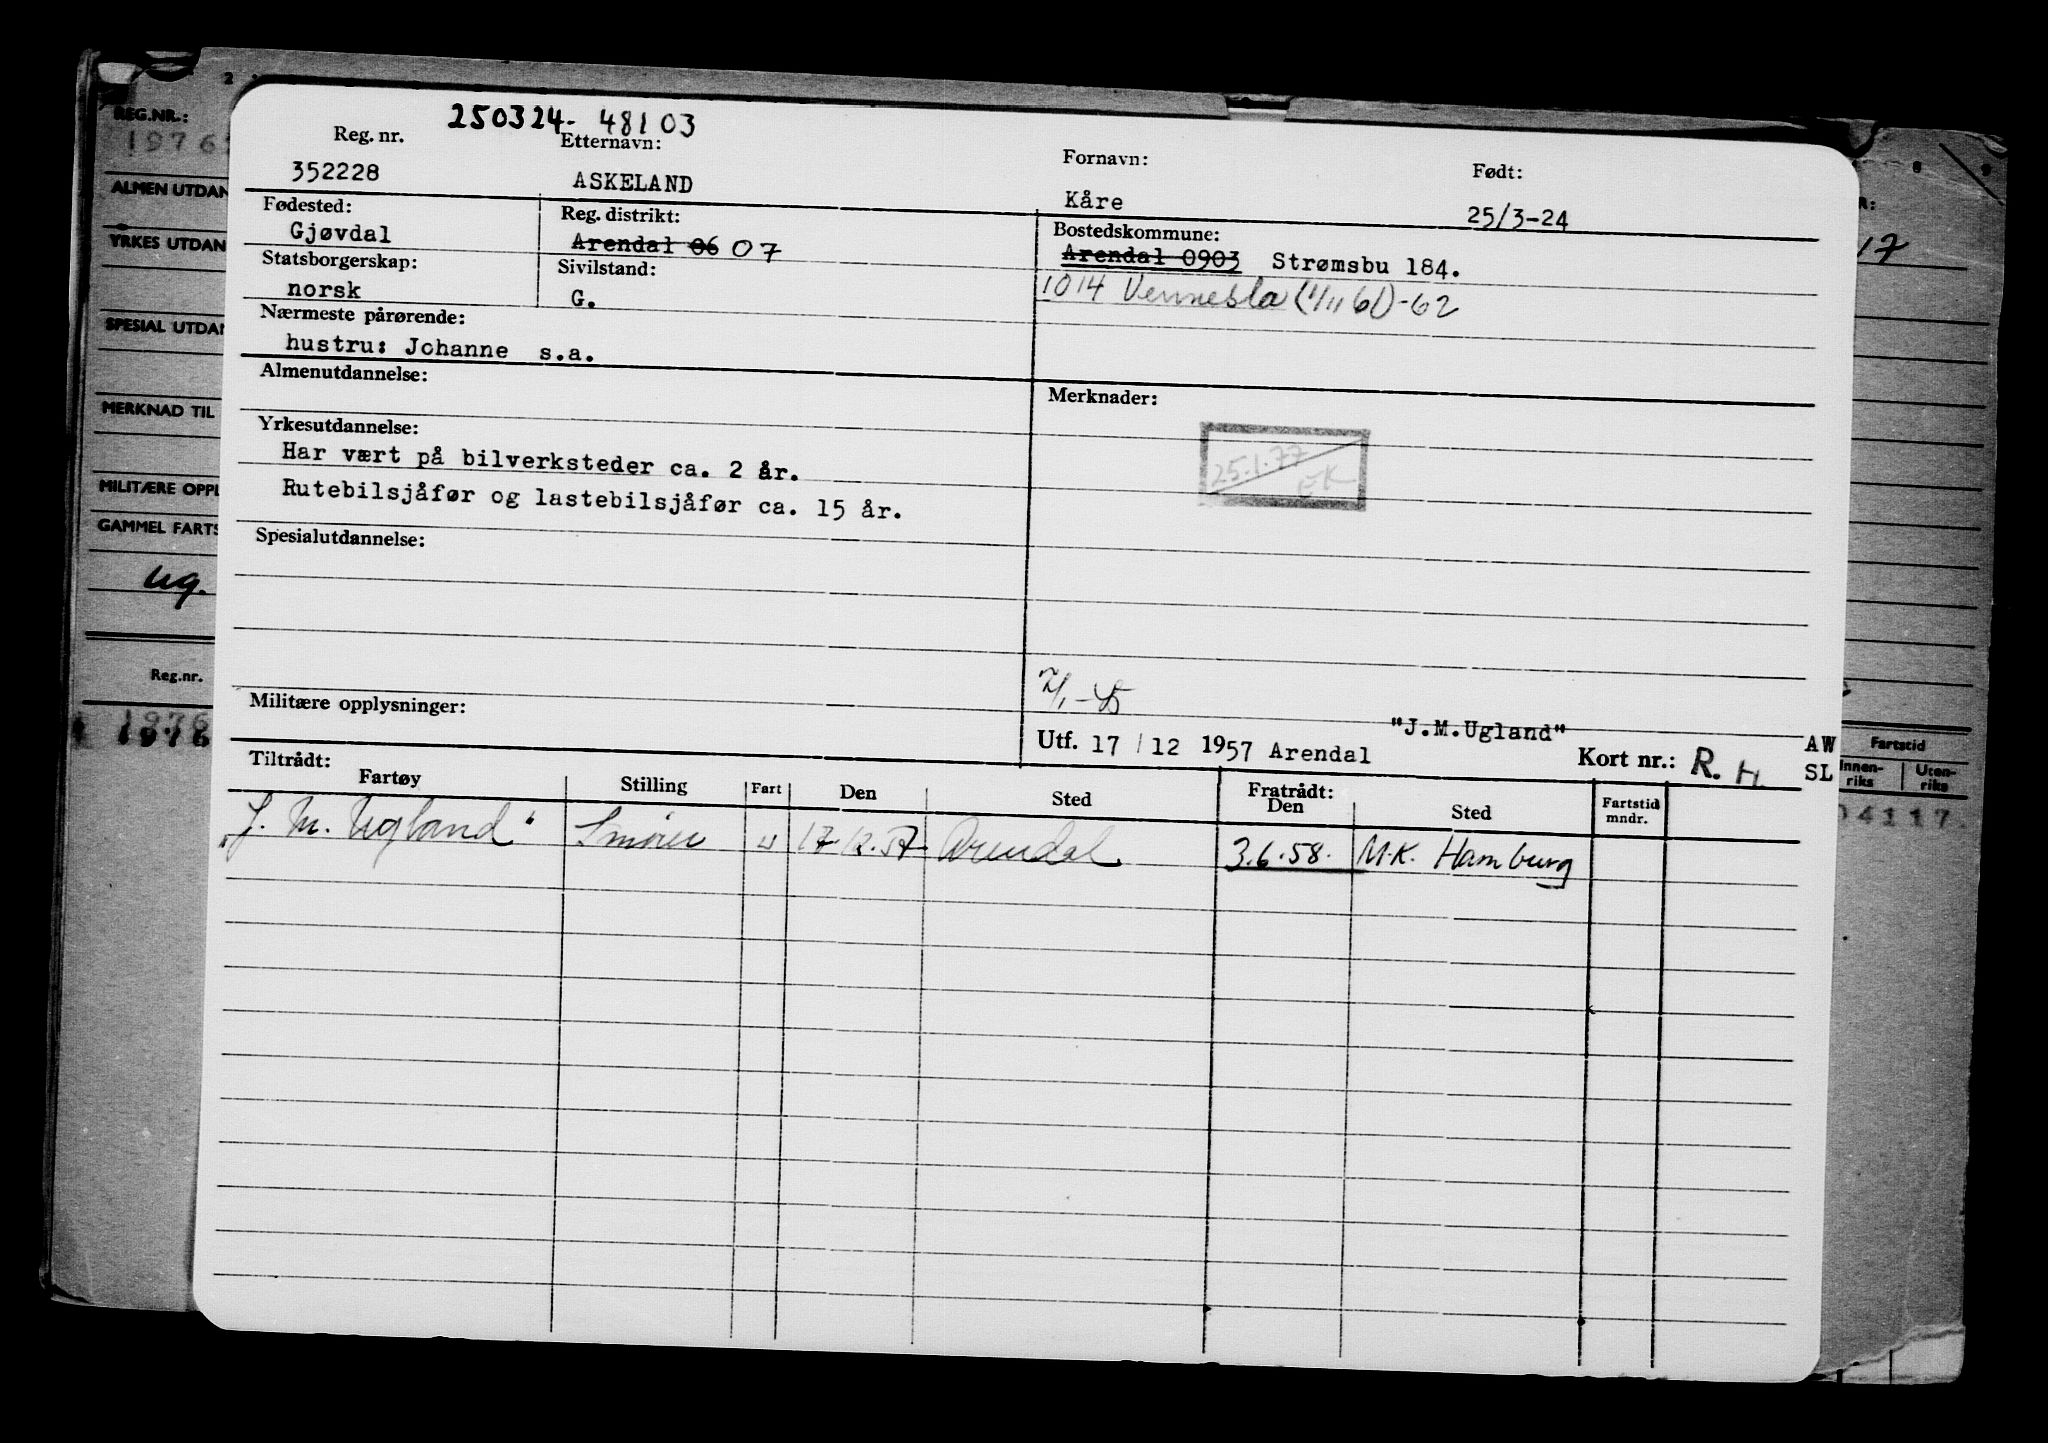 250324-48103
Reg. nr. Etternavn: Fornavn: Født:
352228 ASKELAND Kåre 25/3-24
Fødested: Reg. distrikt: Bostedskommune:
Gjøvdal Arendal 06 07 Arendal 0903 Strømsbu 184.
Statsborgerskap: Sivilstand:
norsk G. 1014 Vennesla (1/11 61)-62
Nærmeste pårørende:
hustru: Johanne s.a.
Almenutdannelse: Merknader:
Yrkesutdannelse:
Har vært på bilverksteder ca. 2 år. 25.1.77
Rutebilsjåfør og lastebilsjåfør ca. 15 år. EK
Spesialutdannelse:
Militære opplysninger:
"J.M.Ugland"
Utf. 17/12 1957 Arendal Kort nr.: R. H. AW
SL
Tiltrådt: Fratrådt:
Fartøy Stilling Fart Den Sted Den Sted Fartstid
mndr.
"J. M. Ugland" Smører u 17.12.57. Arendal 3.6.58. M.K. Hamburg
REG.NR.:
1976
ALMEN UTDAN
YRKES UTDAN
SPESIAL UTDAN
MERKNAD TIL
MILITÆRE OPPL
GAMMEL FARTS
ug.
Reg.nr.
1976
R:
17
Fartstid
Innen-
riks
Uten-
riks
04117.